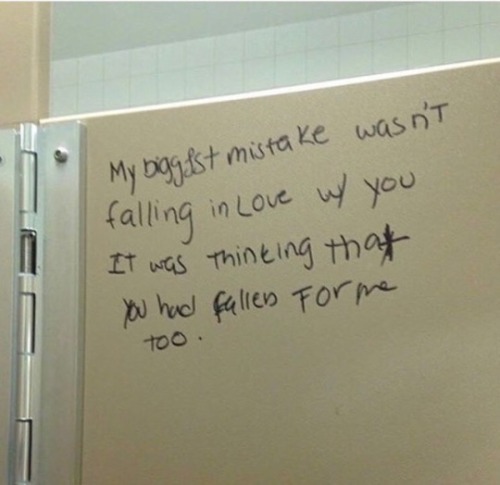 My biggest mistake wasn't
falling in Love w/ you
IT was Thinking that
you had fallen For me
Too.